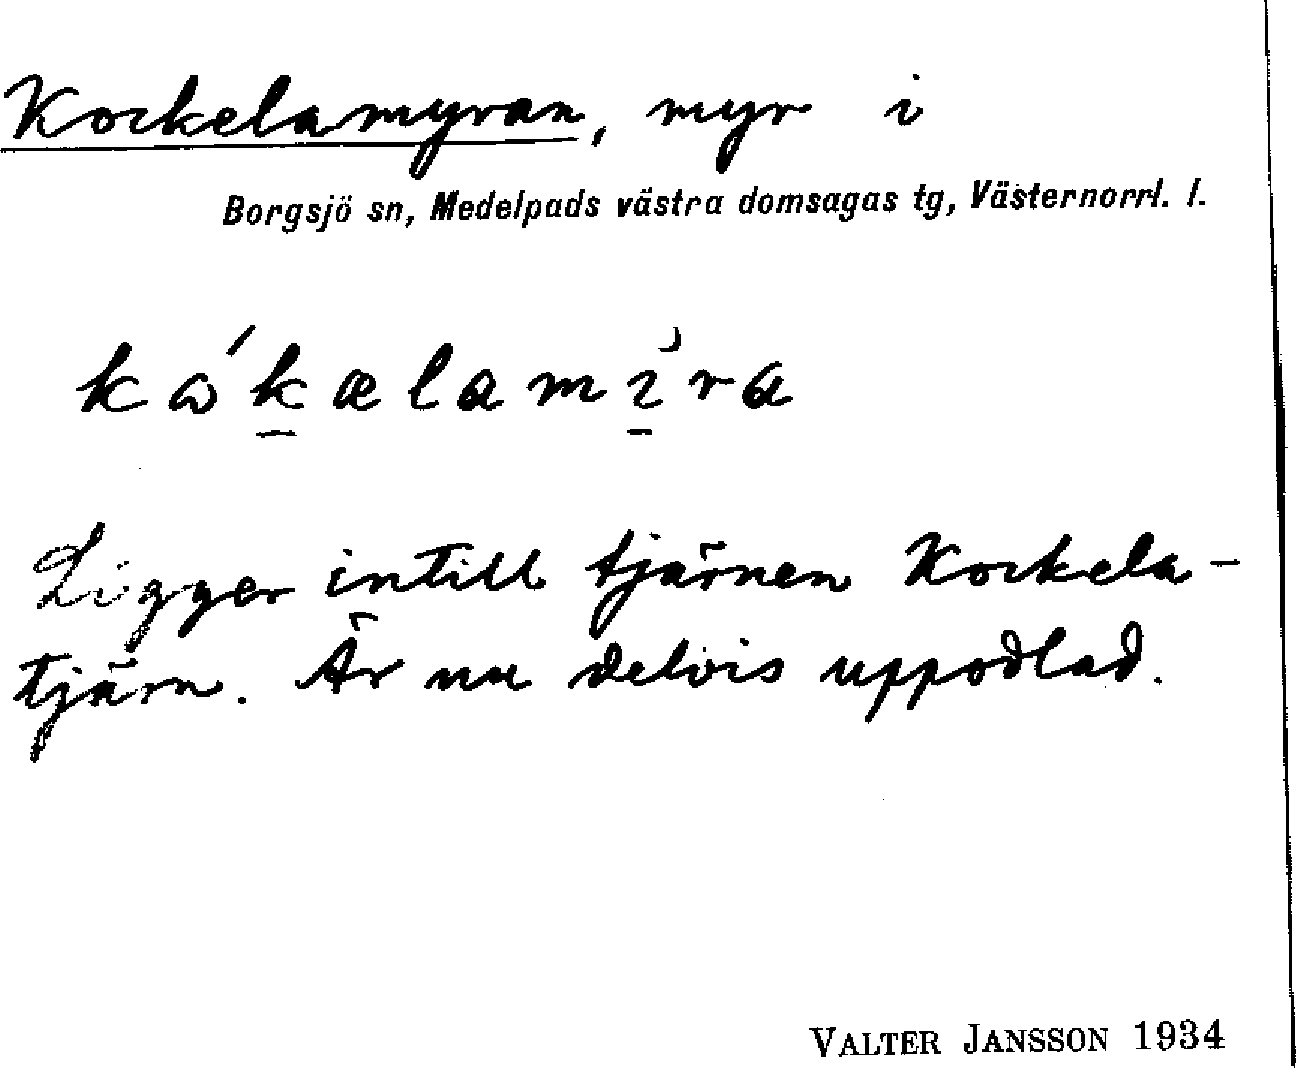 Kockelamyran, myr i
Borgsjö sn, Medelpads västra domsagas tg, Västernorrl. l.
kɷ́k̲ælamɿ̲̓ra
Ligger intill tjärnen Kockela-
tjärn. Är nu delvis uppodlad.
VALTER JANSSON 1934